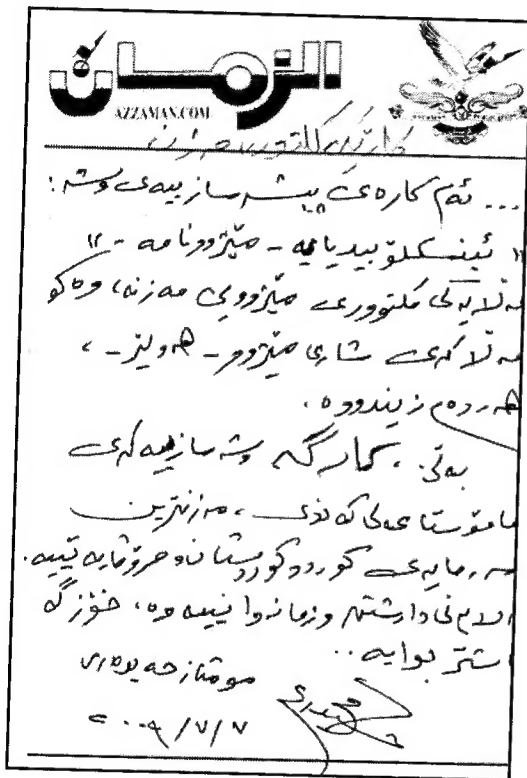 الزمان
AZZAMAN.COM
... ئەم کارەی پیشەسازییەی وشە:
ئینسکلۆپیدیایە - مێژوونامە - ١٢
قەڵایەکی کلتووری مێژوویی مەزنە، وەکو
قەڵاکەی شاری مێژوو - هەولێر -،
هەردەم زیندووە.
بەڵێ. کارگە وشەسازییەکەی
مامۆستا عەلی کەندی، مەزنترین
سەرمایەی کوردو کوردستان و مرۆڤایەتییە.
لەم داڕشتن و زمانەوانییەوە، خۆزگە
بوایە..
مومتاز حەیدەری
٢٠٠٩/٧/٧